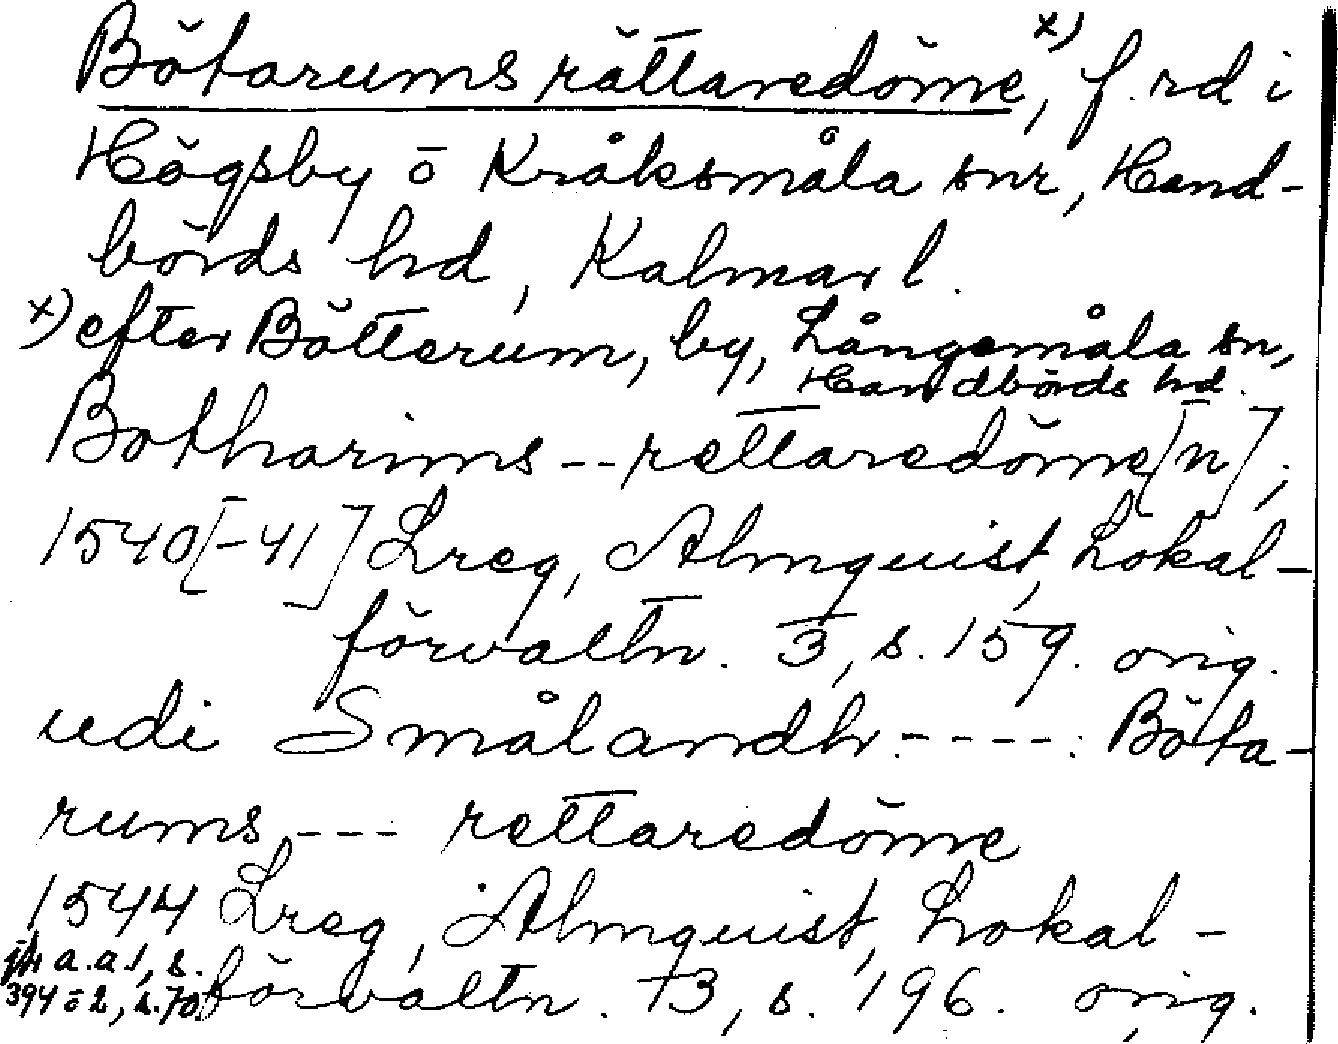 Bötarums rättaredöme, x) f.rd i
Högsby ō Kråksmåla snr, Hand-
börds hd, Kalmar l.
x) efter Bötterum, by, Långemåla sn,
Handbörds hd.
Botharims -- rettaredöme[n],
1540[-41] Lreg, Almquist, Lokal-
förvaltn. 3, s. 159. orig.
udi Smålandh. ----: Böta-
rums --- rettaredöme
1544 Lreg, Almquist, Lokal-
förvaltn. 3, s. 196. orig.
jfr a.a 1, s.
394 ō 2, s. 70.